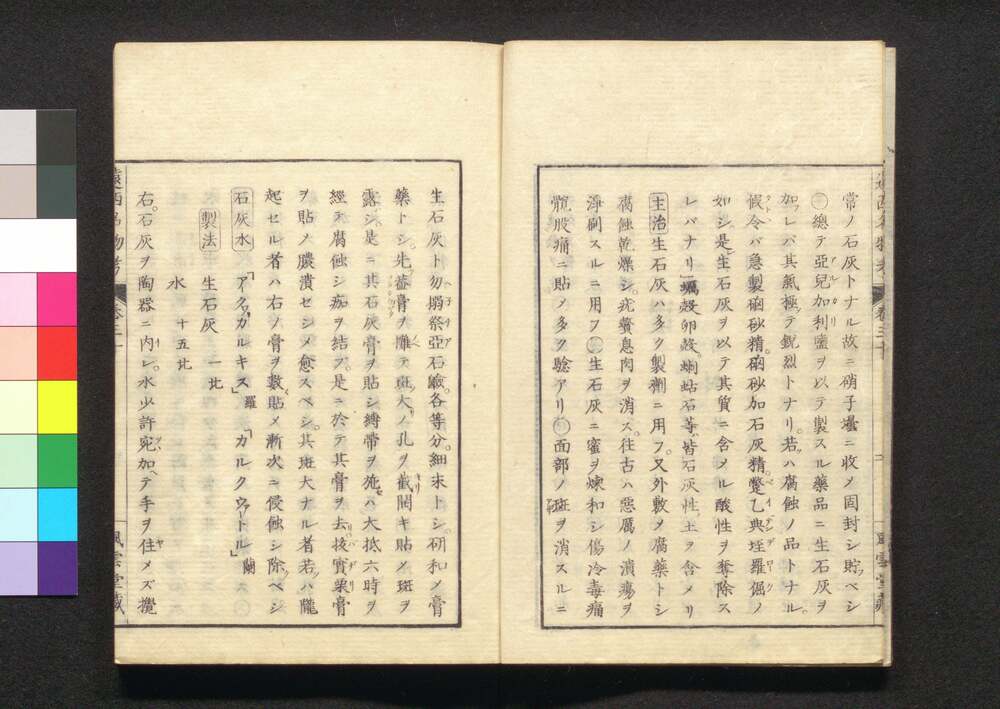 常ノ石灰トナル故ニ硝子壜ニ收メ固封シ貯ベシ
總テ亞兒加利鹽ヲ以テ製スル藥品ニ生石灰ヲ
加レバ其氣極テ銳烈トナリ。若ハ腐蝕ノ品トナル。
假令バ急製硇砂精。硇砂加石灰精。蹩乙與垤羅倔ノ
如シ。是生石灰ヲ以テ其質ニ含メル酸性ヲ奪除ス
レバナリ」蠣殼卵殼蝲蛄石等皆石灰性ノ土ヲ含メリ
主治 生石灰ハ多ク製劑ニ用フ。又外敷メ腐藥トシ
腐蝕乾燥シ。疣贅息肉ヲ消ス。往古ハ惡厲ノ潰瘍ヲ
淨刷スルニ用フ 生石灰ニ蜜ヲ煉和シ傷冷毒痛
髖股痛ニ貼メ多ク驗アリ 面部ノ斑ヲ消スルニ
生石灰ト勿搦祭亞石鹼。各等分。細末トシ。研和メ膏
藥トシ。先蕃膏ヲ攤テ斑大ノ孔ヲ截開キ貼メ斑ヲ
露シ。是ニ其石灰膏ヲ貼シ縛帶ヲ施ハ大抵六時ヲ
經テ腐蝕シ痂ヲ結ブ。是ニ於テ其膏ヲ去拔實栗膏
ヲ貼メ膿潰セシメ愈スベシ。其斑大ナル者若ハ隴
起セル者ハ右ノ膏ヲ數貼メ漸次ニ侵蝕シ除ベシ
石灰水 「アクカルキス」羅 「カルクウートル」蘭
製法 生石灰 一比
水 十五比
右。石灰ヲ陶器ニ內レ。水少許宛加ヘテ手ヲ住メズ攪
風雲堂藏